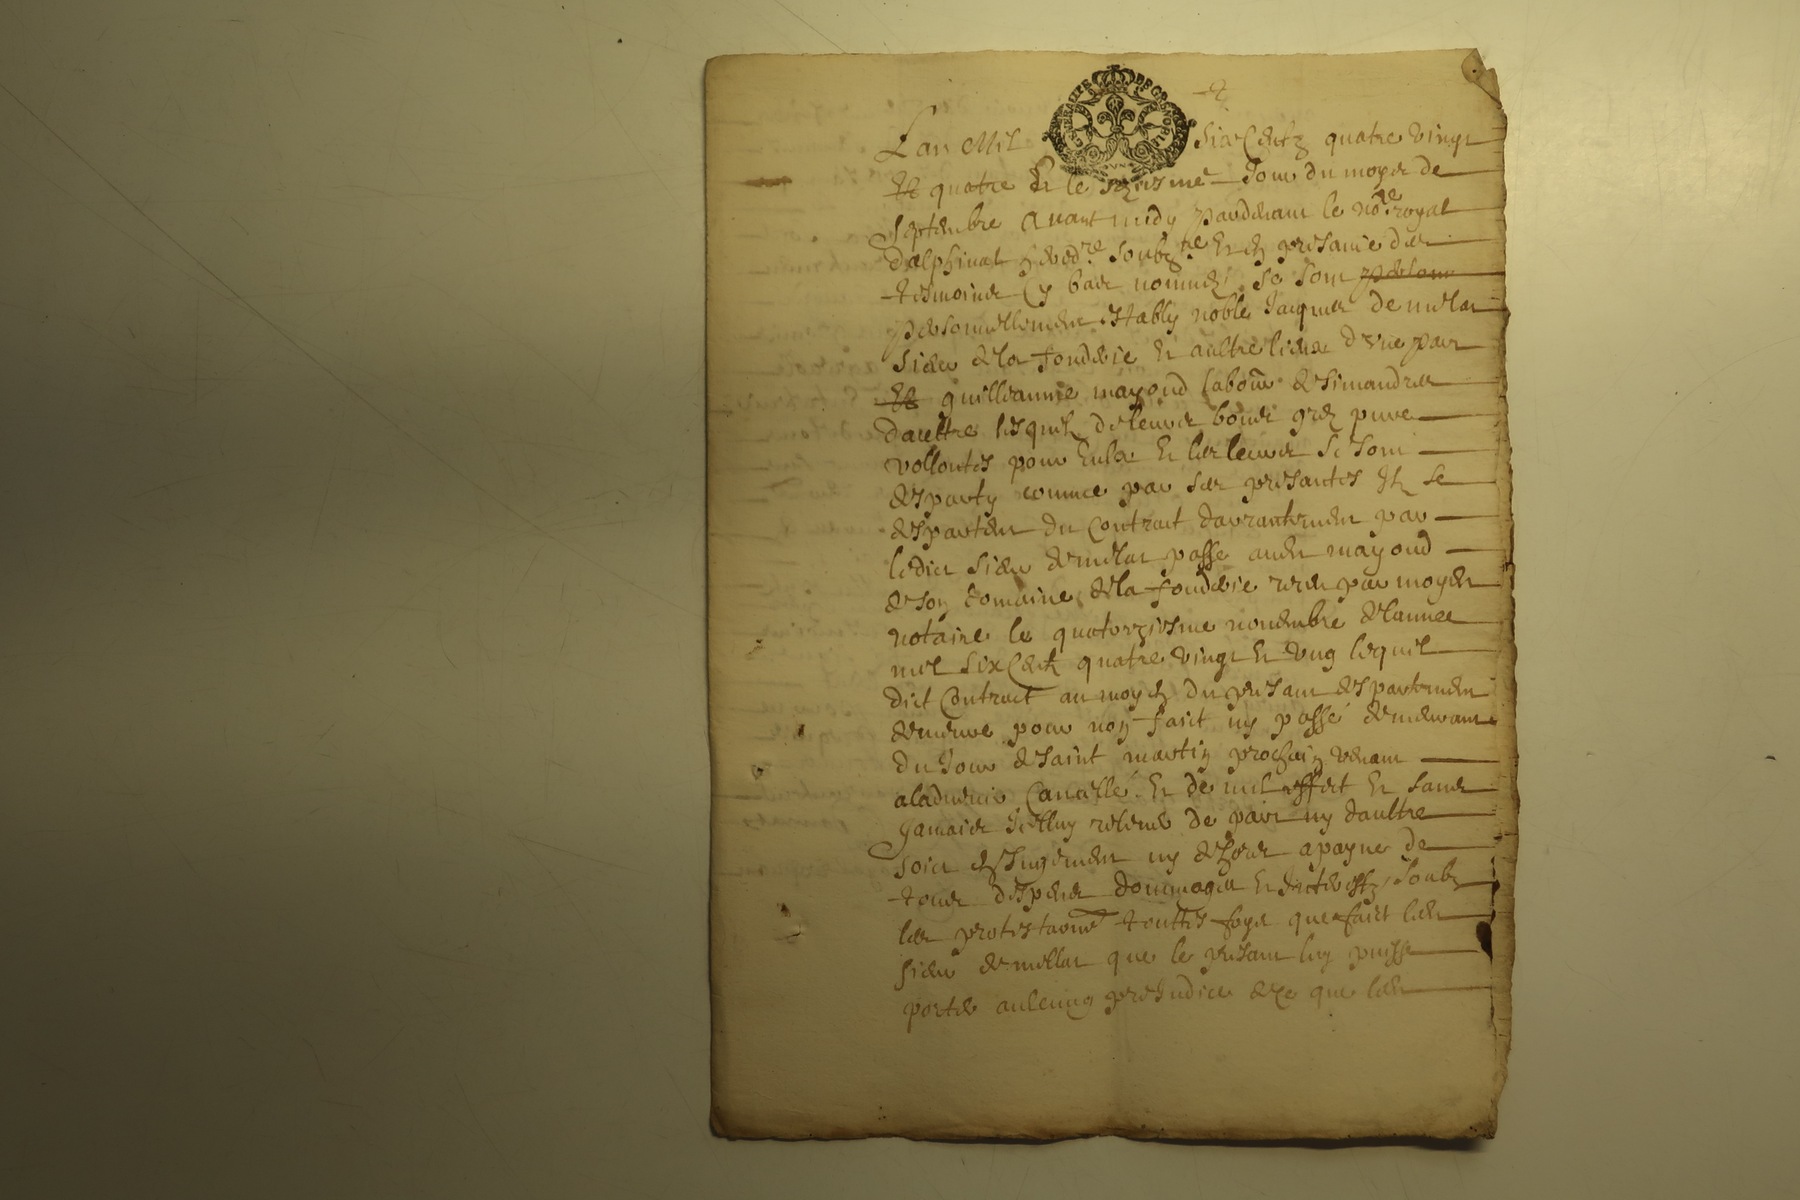 GENERALITE DE GRENOBLE
Lan Mil sixCentz quatre vingt
Et quatre Et le siziesme Jour du moys de
septembre avant midy pardevant le no.re royal
dalphinal hered.re soubz.ne Et en presance des
tesmoins Cy bas nommés se sont
personnellement estably noble Jacques de millat
sieur de la fonderie Et aultre lieux dune part
Et guilleaume mayoud labour de simandres
daultre lesquelz de leurs bones grez pure
vollontes pour Eulx Et les leurs se sont
desparty comme par ses presantes Ilz se
despartent du Contract darrantement par
ledict sieur de millat passe audit mayoud
de son domaine de la fonderie receu par moyd
notaire le quatorziesme novembre de lannee
mil sixCentz quatre vingt Et ung lequel
dict Contract au moyen du presant despartement
demeure pour non faict ny passé demeurant
du Jour de saint martin prochain venant
aladvenir Cancellé Et de nul effect Et sans
Jamais Icelluy relever de part ny daultre
soict en Jugement ny dehors a payne de
tous despens dommages Et Interestz soubz
les protestaons touttes foys que faict led
sieur de millat que le presant luy puisse
porter aulcung preJudice de ce que led